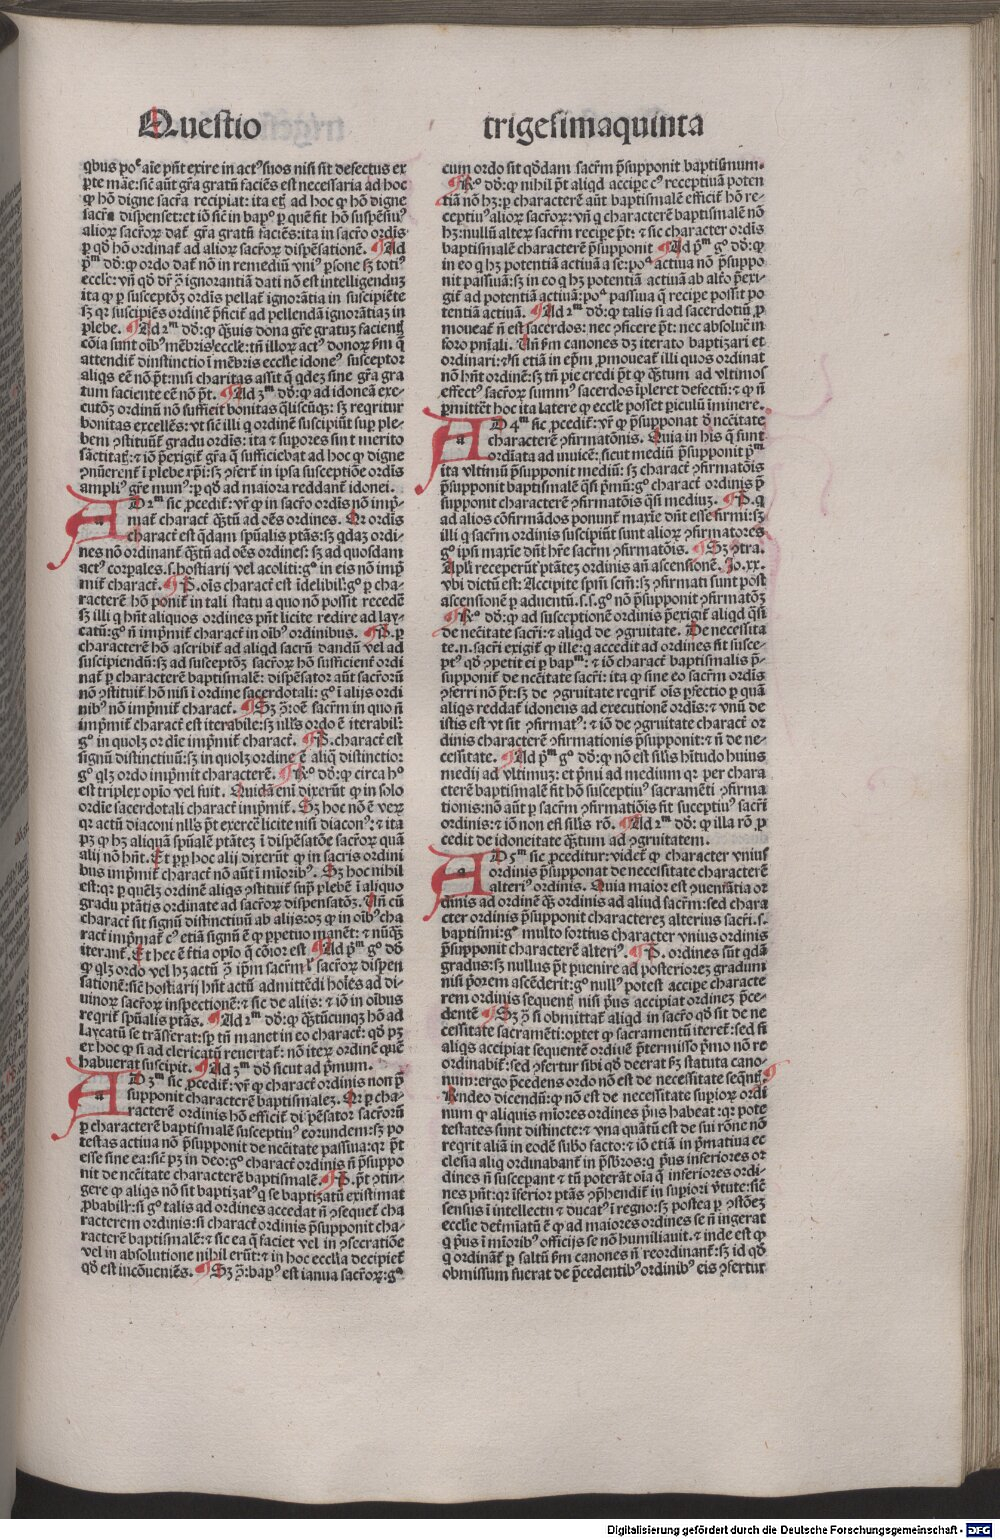 Questio trigesimaquinta
qbus po͛ aīe pn̄t exire in act⁹ suos nisi sīt defectus ex
ꝑte māe: sic̄ aūt gr̄a gratū faciēs est necessaria ad hoc
ꝙ hō digne sacr̄a recipiat: ita etꝫ ad hoc ꝙ hō digne
sacr̄a dispenset: et iō sic̄ in bap⁰ ꝑ quē fit hō suscepti⁹
alioꝝ sacr̄oꝝ dat̄ gr̄a gratū faciēs: ita in sacro ordīs
ꝑ qd̄ hō ordinat̄ ad alioꝝ sacr̄oꝝ dispēsationē. Ad
pᵐ dō: ꝙ ordo dat̄ nō in remediū vni⁹ ꝑsone sꝫ toti⁹
eccl̄e: vn̄ qd̄ dr̄ ꝯ̄ ignorantiā dati nō est intelligenduꝫ
ita ꝙ ꝑ susceptōꝫ ordīs pellat̄ ignorātia in suscipiēte
sꝫ qꝛ suscipiēs ordinē p̄ficit̄ ad pellendā ignorātiaꝫ in
plebe. Ad 2ᵐ dō: ꝙ quis dona gr̄e gratuꝫ facientꝭ
cōia sunt oīb⁹ mēbris eccl̄e: tn̄ illoꝝ act⁹ donoꝝ ẜm q̄
attendit̄ distinctio ī mēbris eccl̄ie idone⁹ susceptor
aliqs eē nō pt̄: nisi charitas assit q̄ qdeꝫ sine gr̄a gra
tum faciente eē nō pt̄. Ad 3ᵐ dō: ꝙ ad idoneā exe-
cutōꝫ ordinū nō sufficit bonitas q̄liscūqꝫ: sꝫ reqritur
bonitas excellēs: vt sic̄ illi q ordinē suscipiūt suꝑ ple-
bem ꝯstituūt̄ gradu ordīs: ita ⁊ suꝑiores sint merito
sāctitat̄: ⁊ iō p̄exigit̄ gr̄a q̄ sufficiebat ad hoc ꝙ digne
ꝯnūerent̄ ī plebe xp̄i: sꝫ ꝯfert̄ in ipsa susceptiōe ordīs
ampli⁹ gr̄e mun⁹: ꝑ qd̄ ad maiora reddant̄ idonei.
AD 2ᵐ sic ꝓcedit̄: vr̄ ꝙ in sacro ordīs nō imp̄-
mat̄ charact̄ qꝫtū ad oēs ordines. Qꝛ ordīs
charact̄ est qdam spūalis ptās: sꝫ qdaꝫ ordi-
nes nō ordinant̄ qꝫtū ad oēs ordines: sꝫ ad quosdam
act⁹ corꝑales. s. hostiarij vel acoliti: gº in eis nō imp̄
mit̄ charact̄. P. oīs charact̄ est īdelibil̄: gº ꝑ cha-
racterē hō ponit̄ in tali statu a quo nō possit recedē
sꝫ illi q hn̄t aliquos ordines pn̄t licite redire ad lay-
catū: gº n̄ imp̄mit̄ charact̄ in oīb⁹ ordinibus. P. ꝑ
characterē hō ascribit̄ ad aliqd sacrū dandū vel ad
suscipiendū: sꝫ ad susceptōꝫ sacr̄oꝝ hō sufficient̄ ordi
nat̄ ꝑ characterē baptismalē: dispēsator aūt sacr̄orū
nō ꝯstituit̄ hō nisi ī ordine sacerdotali: gº ī alijs ordi
nib⁹ nō imp̄mit̄ charact̄. Sꝫ ꝯ̄: oē sacr̄m in quo n̄
imp̄mit̄ charact̄ est iterabile: sꝫ null⁹s ordo ē iterabil̄:
gº in quolꝫ ordīe imp̄mit̄ charact̄. P. charact̄ est
signū distinctiuū: sꝫ in quolꝫ ordine ē aliq̄ distinctio:
gº qlꝫ ordo imp̄mit characterē. R̄º dō: ꝙ circa hº
est triplex opīo vel fuit. Quidā eni dixerūt ꝙ in solo
ordīe sacerdotali charact̄ imp̄mit̄. Sꝫ hoc nō ē veꝝ
qꝛ actū diaconi null⁹s pt̄ exercē licite nisi diacon⁹: ⁊ ita
pꝫ ꝙ hꝫ aliquā spūalē ptātꝫ ī dispēsatōe sacr̄oꝝ quā
alij nō hn̄t. Et ꝓp hoc alij dixerūt ꝙ in sacris ordini
bus imp̄mit̄ charact̄ nō aūt ī mīorib⁹. Sꝫ hoc nihil
est: qꝛ ꝑ quēlꝫ ordinē aliqs ꝯstituit̄ suꝑ plebē ī aliquo
gradu ptātis ordinate ad sacr̄oꝝ dispensatōꝫ. Vn̄ cū
charact̄ sit signū distinctiuū ab alijs: oꝫ ꝙ in oīb⁹ cha
ract̄ imp̄mat̄ c⁹ etiā signū ē ꝙ ꝑpetuo manēt: ⁊ nūqꝫ
iterant̄. Et hec ē t̄tia opīo q̄ cōior est Ad pᵐ gº dō
ꝙ qlꝫ ordo vel hꝫ actū ꝯ̄ ip̄m sacr̄m l̄ sacr̄oꝝ dispen
sationē: sic̄ hostiarij hn̄t actū admittēdi hoīes ad di-
uinoꝝ sacr̄oꝝ inspectionē: ⁊ sic de alijs: ⁊ iō in oībus
reqrit̄ spūalis ptās. Ad 2ᵐ dō: ꝙ qꝫtūcunqꝫ hō ad
laycatū se trāsferat: sp tn̄ manet in eo charact̄: qd̄ pꝫ
ex hoc ꝙ si ad clericatū reuertat̄: nō iteꝝ ordinē quē
habuerat suscipit. Ad 3ᵐ dō sicut ad p̄mum.
AD 3ᵐ sic ꝓcedit̄: vr̄ ꝙ charact̄ ordinis non p̄
supponit characterē baptismaleꝫ. Qꝛ ꝑ cha-
racterē ordinis hō efficit̄ dispēsator sacr̄orū
ꝑ characterē baptismalē susceptiu⁹ eorundem: sꝫ po
testas actiua nō p̄supponit de necītate passiua: qꝛ pt̄
esse sine ea: sic̄ pꝫ in deo: gº charact̄ ordinis n̄ p̄suppo
nit de necītate characterē baptismalē. P. pt̄ ꝯtin-
gere ꝙ aliqs nō sit baptizat⁹ q se baptizatū existimat
ꝓbabilr̄: si gº talis ad ordines accedat n̄ ꝯsequet̄ cha
racterem ordinis: si charact̄ ordinis p̄supponit cha-
racterē baptismalē: ⁊ sic ea q̄ faciet vel in ꝯsecratiōe
vel in absolutione nihil erūt: ⁊ in hoc eccl̄ia decipiet̄
qd̄ est incōueniēs. Sꝫ ꝯ̄: bap⁹ est ianua sacr̄oꝝ: gº
cum ordo sit qddam sacr̄m p̄supponit baptismum.
R̄º dō: ꝙ nihil pt̄ aliqd accipe c⁹ receptiuā poten
tiā nō hꝫ: ꝑ characterē aūt baptismalē efficit̄ hō re-
ceptiu⁹ alioꝝ sacr̄oꝝ: vn̄ q characterē baptismalē nō
hꝫ: nullū alteꝝ sacr̄m recipe pt̄: ⁊ sic character ordīs
baptismalē characterē p̄supponit Ad pᵐ gº dō: ꝙ
in eo q hꝫ potentiā actiuā a se: poᵃ actiua nō p̄suppo
nit passiuā: sꝫ in eo q hꝫ potentiā actiuā ab alt̄o p̄exi-
git̄ ad potentiā actiuā: poᵃ passiua q̄ recipe possit po
tentiā actiuā. Ad 2ᵐ dō: ꝙ talis si ad sacerdotiū ꝓ
moueat̄ n̄ est sacerdos: nec ꝯficere pt̄: nec absoluē in
foro pn̄iali. Vn̄ ẜm canones dꝫ iterato baptizari et
ordinari: ⁊ si etiā in ep̄m ꝓmoueat̄ illi quos ordinat
nō hn̄t ordinē: sꝫ tn̄ pie credi pt̄ ꝙ qꝫtum ad vltimos
effect⁹ sacr̄oꝝ summ⁹ sacerdos īpleret defectū: ⁊ ꝙ n̄
ꝑmittet̄ hoc ita latere ꝙ eccl̄e posset ꝑiculū īminere.
AD 4ᵐ sic ꝓcedit̄: vr̄ ꝙ p̄supponat d̄ necītate
characterē ꝯfirmatōnis. Quia in his q̄ sunt
ordiata ad inuicē: sicut mediū p̄supponit pᵐ
ita vltimū p̄supponit mediū: sꝫ charact̄ ꝯfirmatōis
p̄supponit baptismalē qsi p̄mū: gº charact̄ ordinis p̄
supponit characterē ꝯfirmatōis qsi mediuꝫ. P. q
ad alios cōfirmādos ponunt̄ maxīe dn̄t esse firmi: sꝫ
illi q sacr̄m ordinis suscipiūt sunt alioꝝ ꝯfirmatores
gº ipsi maxīe dn̄t hr̄e sacr̄m ꝯfirmatōis. Sꝫ ꝯtra.
Apl̄i receperūt ptāteꝫ ordinis an̄ ascensionē. Jo. xx.
vbi dictū est: Accipite spm̄ scm̄: sꝫ ꝯfirmati sunt post
ascensionē ꝑ aduentū. s. s. gº nō p̄supponit ꝯfirmatōꝫ
R̄º dō: ꝙ ad susceptionē ordinis p̄exigit̄ aliqd qsi
de necītate sacr̄i: ⁊ aliqd de ꝯgruitate. De necessita
te. n. sacr̄i exigit̄ ꝙ ille: q accedit ad ordines sit susce-
pti⁹ qd̄ ꝯpetit ei ꝑ bapᵐ: ⁊ iō charact̄ baptismalis p̄-
supponit̄ de necītate sacr̄i: ita ꝙ sine eo sacr̄m ordīs
ꝯferri nō pt̄: sꝫ de ꝯgruitate reqrit̄ oīs ꝑfectio ꝑ quā
aliqs reddat̄ idoneus ad executionē ordīs: ⁊ vnū de
istis est vt sit ꝯfirmat⁹: ⁊ iō de ꝯgruitate charact̄ or
dinis characterē ꝯfirmationis p̄supponit: ⁊ n̄ de ne-
cessitate. Ad pᵐ gº dō: ꝙ nō est silis hītudo huius
medij ad vltimuꝫ: et p̄mi ad medium qꝛ per chara
cterē baptismalē fit hō susceptiu⁹ sacramēti ꝯfirma
tionis: nō aūt ꝑ sacr̄m ꝯfirmatiōis fit suceptiu⁹ sacr̄i
ordinis: ⁊ iō non est silis rō. Ad 2ᵐ dō: ꝙ illa rō ꝓ
cedit de idoneitate qꝫtum ad ꝯgruitatem.
AD 5ᵐ sic ꝓceditur: videt̄ ꝙ character vnius
ordinis p̄supponat de necessitate characterē
alteri⁹ ordinis. Quia maior est ꝯuenītia or
dinis ad ordinē qꝫ ordinis ad aliud sacr̄m: sed chara
cter ordinis p̄supponit characterez alterius sacr̄i. s.
baptismi: gº multo fortius character vnius ordinis
p̄supponit characterē alteri⁹. P. ordines sūt qdā
gradus: sꝫ nullus pt̄ ꝑuenire ad posteriorez gradum
nisi p̄orem ascēderit: gº null⁹ potest accipe characte
rem ordinis sequentꝭ nisi p̄us accipiat ordinez p̄ce-
dentē Sꝫ ꝯ̄ si obmittat̄ aliqd in sacr̄o qd̄ sit de ne
cessitate sacramēti: optet ꝙ sacramentū iteret̄: sed si
aliqs accipiat sequentē ordinē p̄termisso p̄mo nō re
ordinabit̄: sed ꝯfertur sibi qd̄ deerat ẜm statuta cano-
num: ergo p̄cedens ordo nō est de necessitate seqn̄t.
Rn̄deo dicendū: ꝙ nō est de necessitate supioꝝ ordi
num ꝙ aliquis mīores ordines p̄us habeat: qꝛ pote
testates sunt distincte: ⁊ vna quātū est de sui rōne nō
reqrit aliā in eodē subº facto: ⁊ iō etiā in p̄matiua ec
clesia aliq ordinabant̄ in p̄sbr̄os: q p̄us inferiores or
dines n̄ susceperant ⁊ tn̄ poterāt oīa q̄ inferiores ordi-
nes pn̄t: qꝛ īferior ptās ꝯp̄hendit̄ in supiori v̄tute: sic̄
sensus ī intellectu ⁊ ducat⁹ ī regno: sꝫ postea ꝑ ꝯstōeꝫ
eccl̄ie det̄miatū ē ꝙ ad maiores ordines se n̄ ingerat
q p̄us ī mīorib⁹ officijs se nō humiliauit. ⁊ inde est ꝙ
q ordinat̄ ꝑ saltū ẜm canones n̄ reordinant̄: sꝫ id qd̄
obmissum fuerat de p̄cedentib⁹ ordinib⁹ eis ꝯfertur
Digitalisierung gefördert durch die Deutsche Forschungsgemeinschaft - DFG